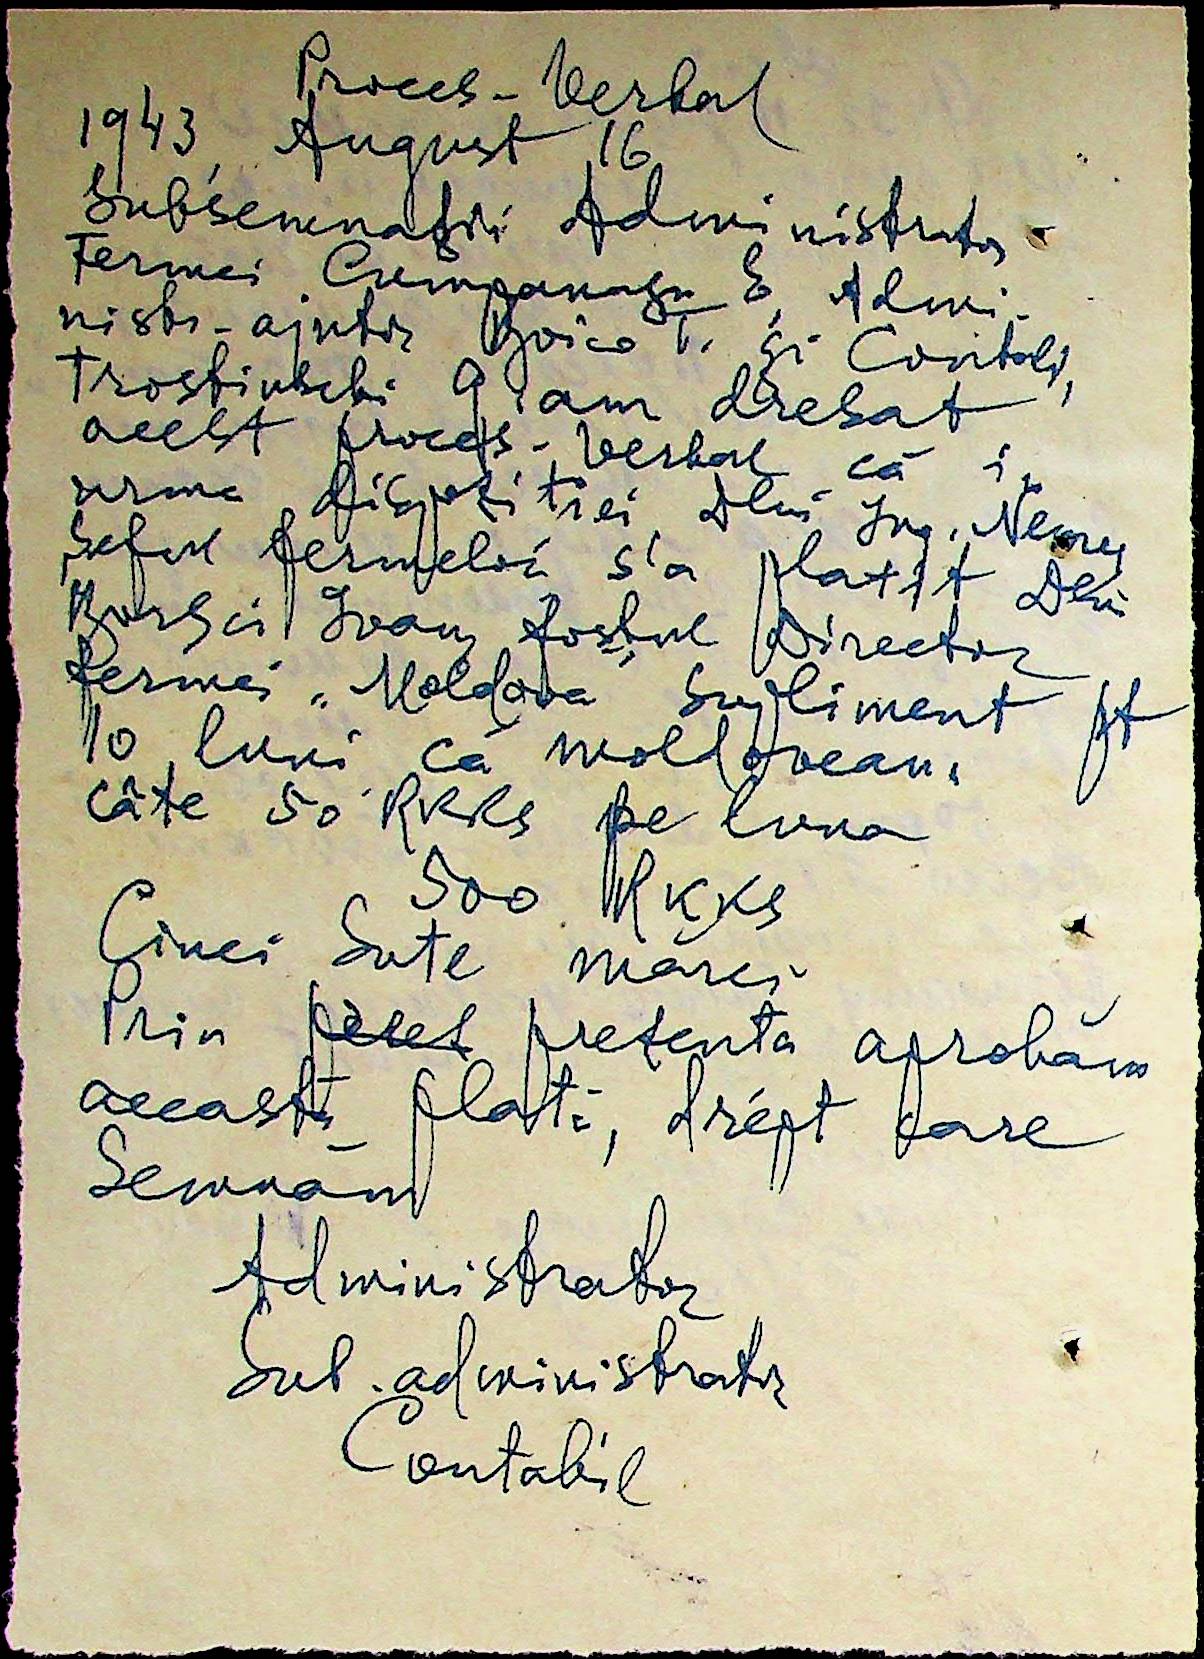 Proces-Verbal
1943 August 16
Subsemnații Administrator
Fermei Cumpanașu E, Admi-
nistr-ajutor Boico T. și Contabil,
Trostinschi G, am dresat
acest proces-verbal că in
urma dispoziției Dlui Ing.
Șeful fermelor s'a platit Dlui
Ivan fostul Director
fermei „Moldova" supliment pt
10 luni ca moldovean,
câte 50 RKKS pe luna
500 RKKS
Cinci Sute mărci
Prin prezenta aprobăm
această plată, drept care
Semnăm
Administrator
Sub.administrator
Contabil